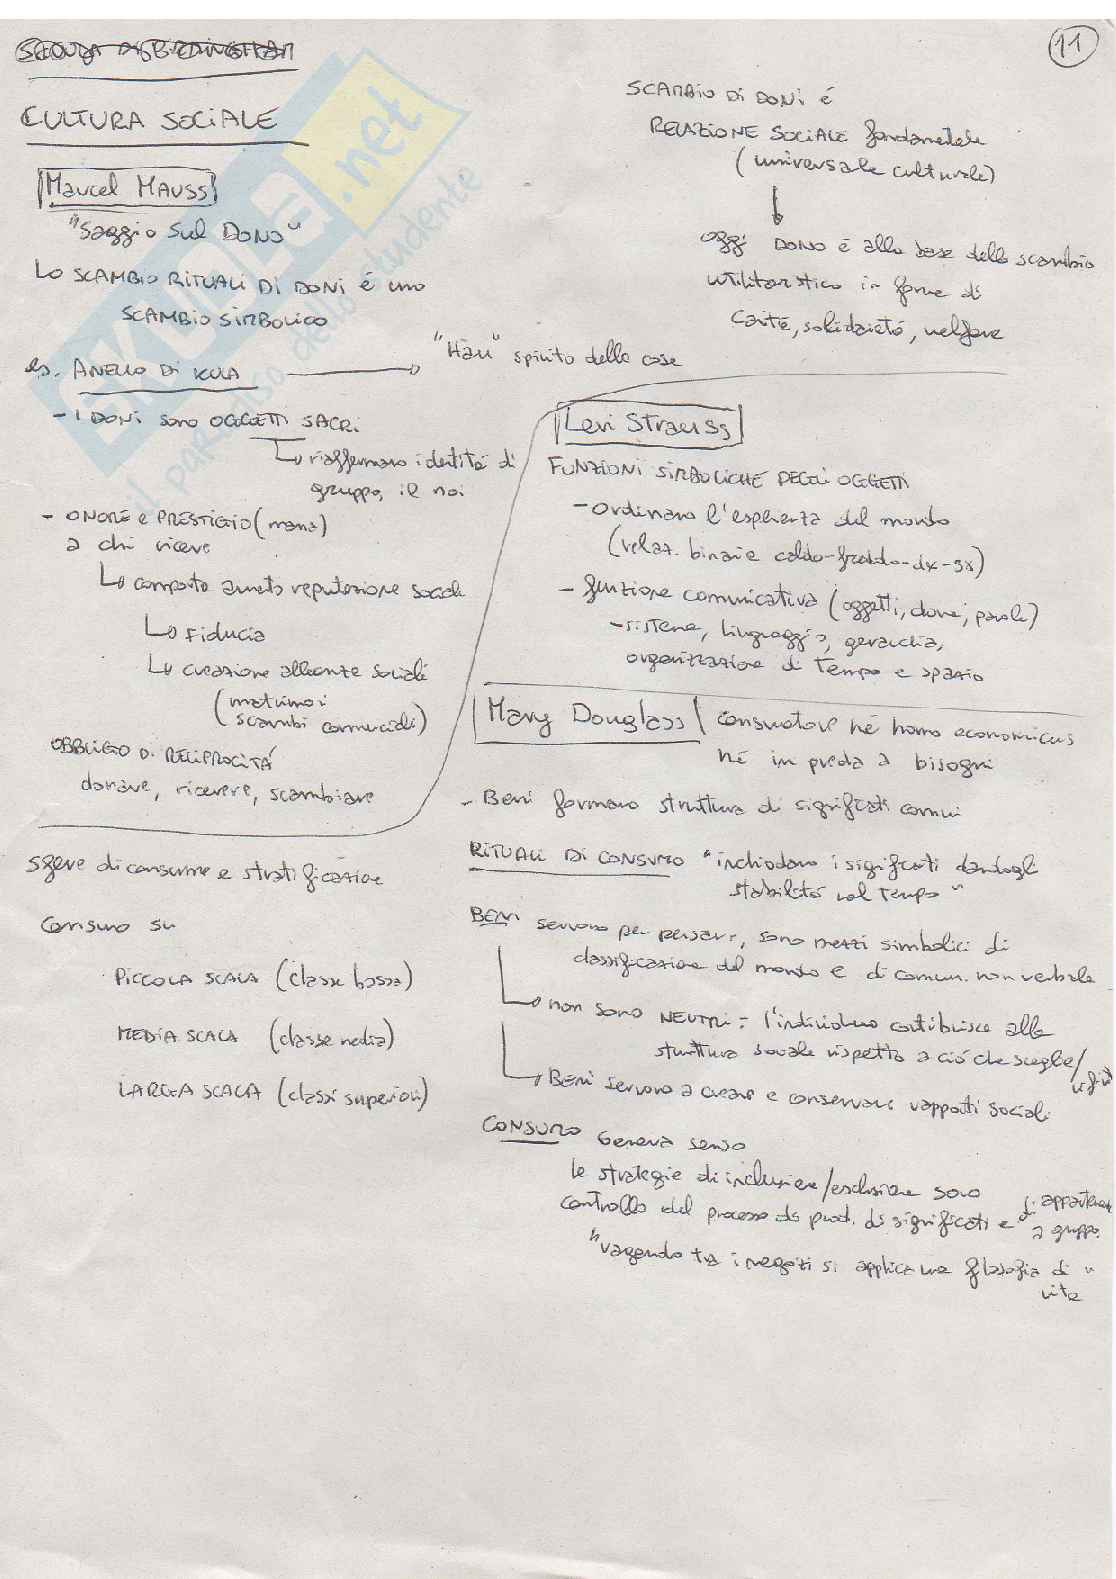 11
SCUOLA DI BIRMINGHAM
CULTURA SOCIALE
Marcel MAUSS
"Saggio sul DONO"
LO SCAMBIO RITUALI DI DONI é uno
SCAMBIO SIMBOLICO
es. ANELLO DI KULA
"Hau" spirito delle cose
- I DONI sono OGGETTI SACRI
riaffermano identitá di
gruppo, il noi
- ONORE e PRESTIGIO (mana)
a chi riceve
comporta aumento reputazione sociale
FIDUCIA
creazione alleanze sociali
(matrimoni
scambi commerciali)
OBBLIGO DI RECIPROCITÁ
donare, ricevere, scambiare
SCAMBIO DI DONI é
RELAZIONE SOCIALE fondamentale
(universale culturale)
oggi DONO é alla base dello scambio
utilitaristico in forme di
caritá, solidarietá, welfare
Levi Strauss
FUNZIONI SIMBOLICHE DEGLI OGGETTI
- Ordinano l'esperienza del mondo
(relaz. binarie caldo-freddo-dx-sx)
- funzione comunicativa (oggetti, donne, parole)
- sistema, linguaggio, gerarchia,
organizzazione di tempo e spazio
Mary Douglass consumatore né homo economicus
né in preda a bisogni
- Beni formano struttura di significati comuni
RITUALI DI CONSUMO "inchiodano i significati dandogli
stabilitá nel tempo"
BENI servono per pensare, sono mezzi simbolici di
classificazione del mondo e di comun. non verbale
non sono NEUTRI: l'individuo contribuisce alla
struttura sociale rispetto a ció che sceglie/
rifiuta
Beni servono a creare e conservare rapporti sociali
CONSUMO Genera senso
le strategie di inclusione/esclusione sono
controllo del processo di prod. di significati e di appartenenza
a gruppo.
"vagando tra i negozi si applica una filosofia di
vita"
sfere di consumo e stratificazione
Consumo su
PICCOLA SCALA (classe bassa)
MEDIA SCALA (classe media)
LARGA SCALA (classi superiori)
SKUOLA.net
il paradiso dello studente